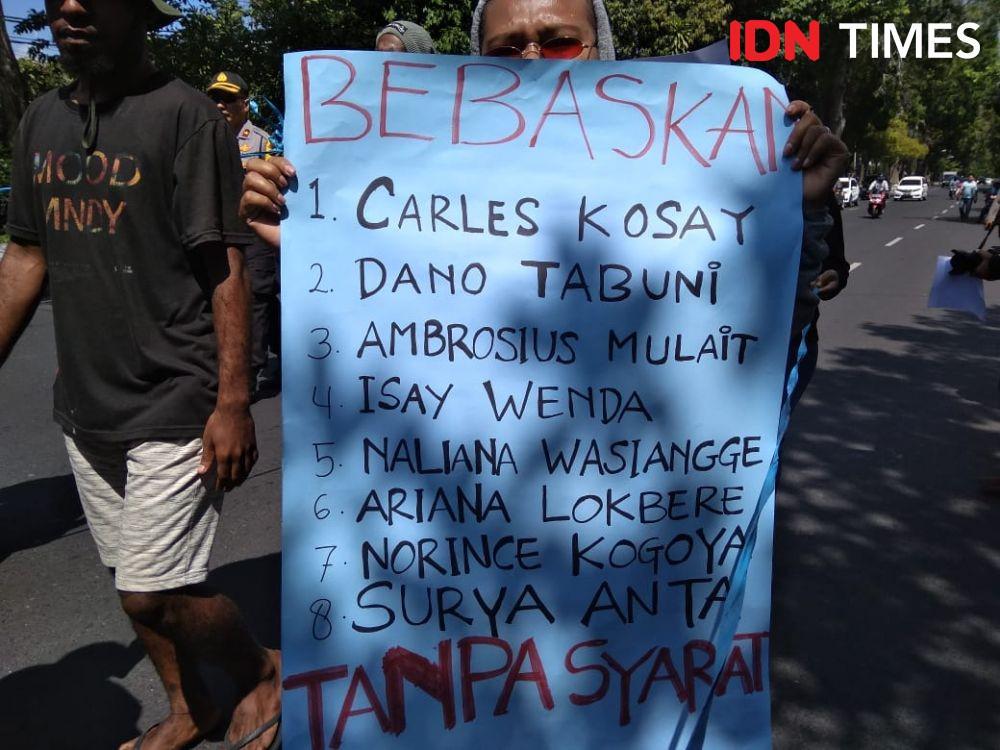 IDN TIMES
MOOD
INDY
BEBASKAN
1. CARLES KOSAY
2. DANO TABUNI
3. AMBROSIUS MULAIT
4. ISAY WENDA
5. NALIANA WASIANGGE
6. ARIANA LOKBERE
7. NORINCE KOGOYA
8. SURYA ANTA
TANPA SYARAT